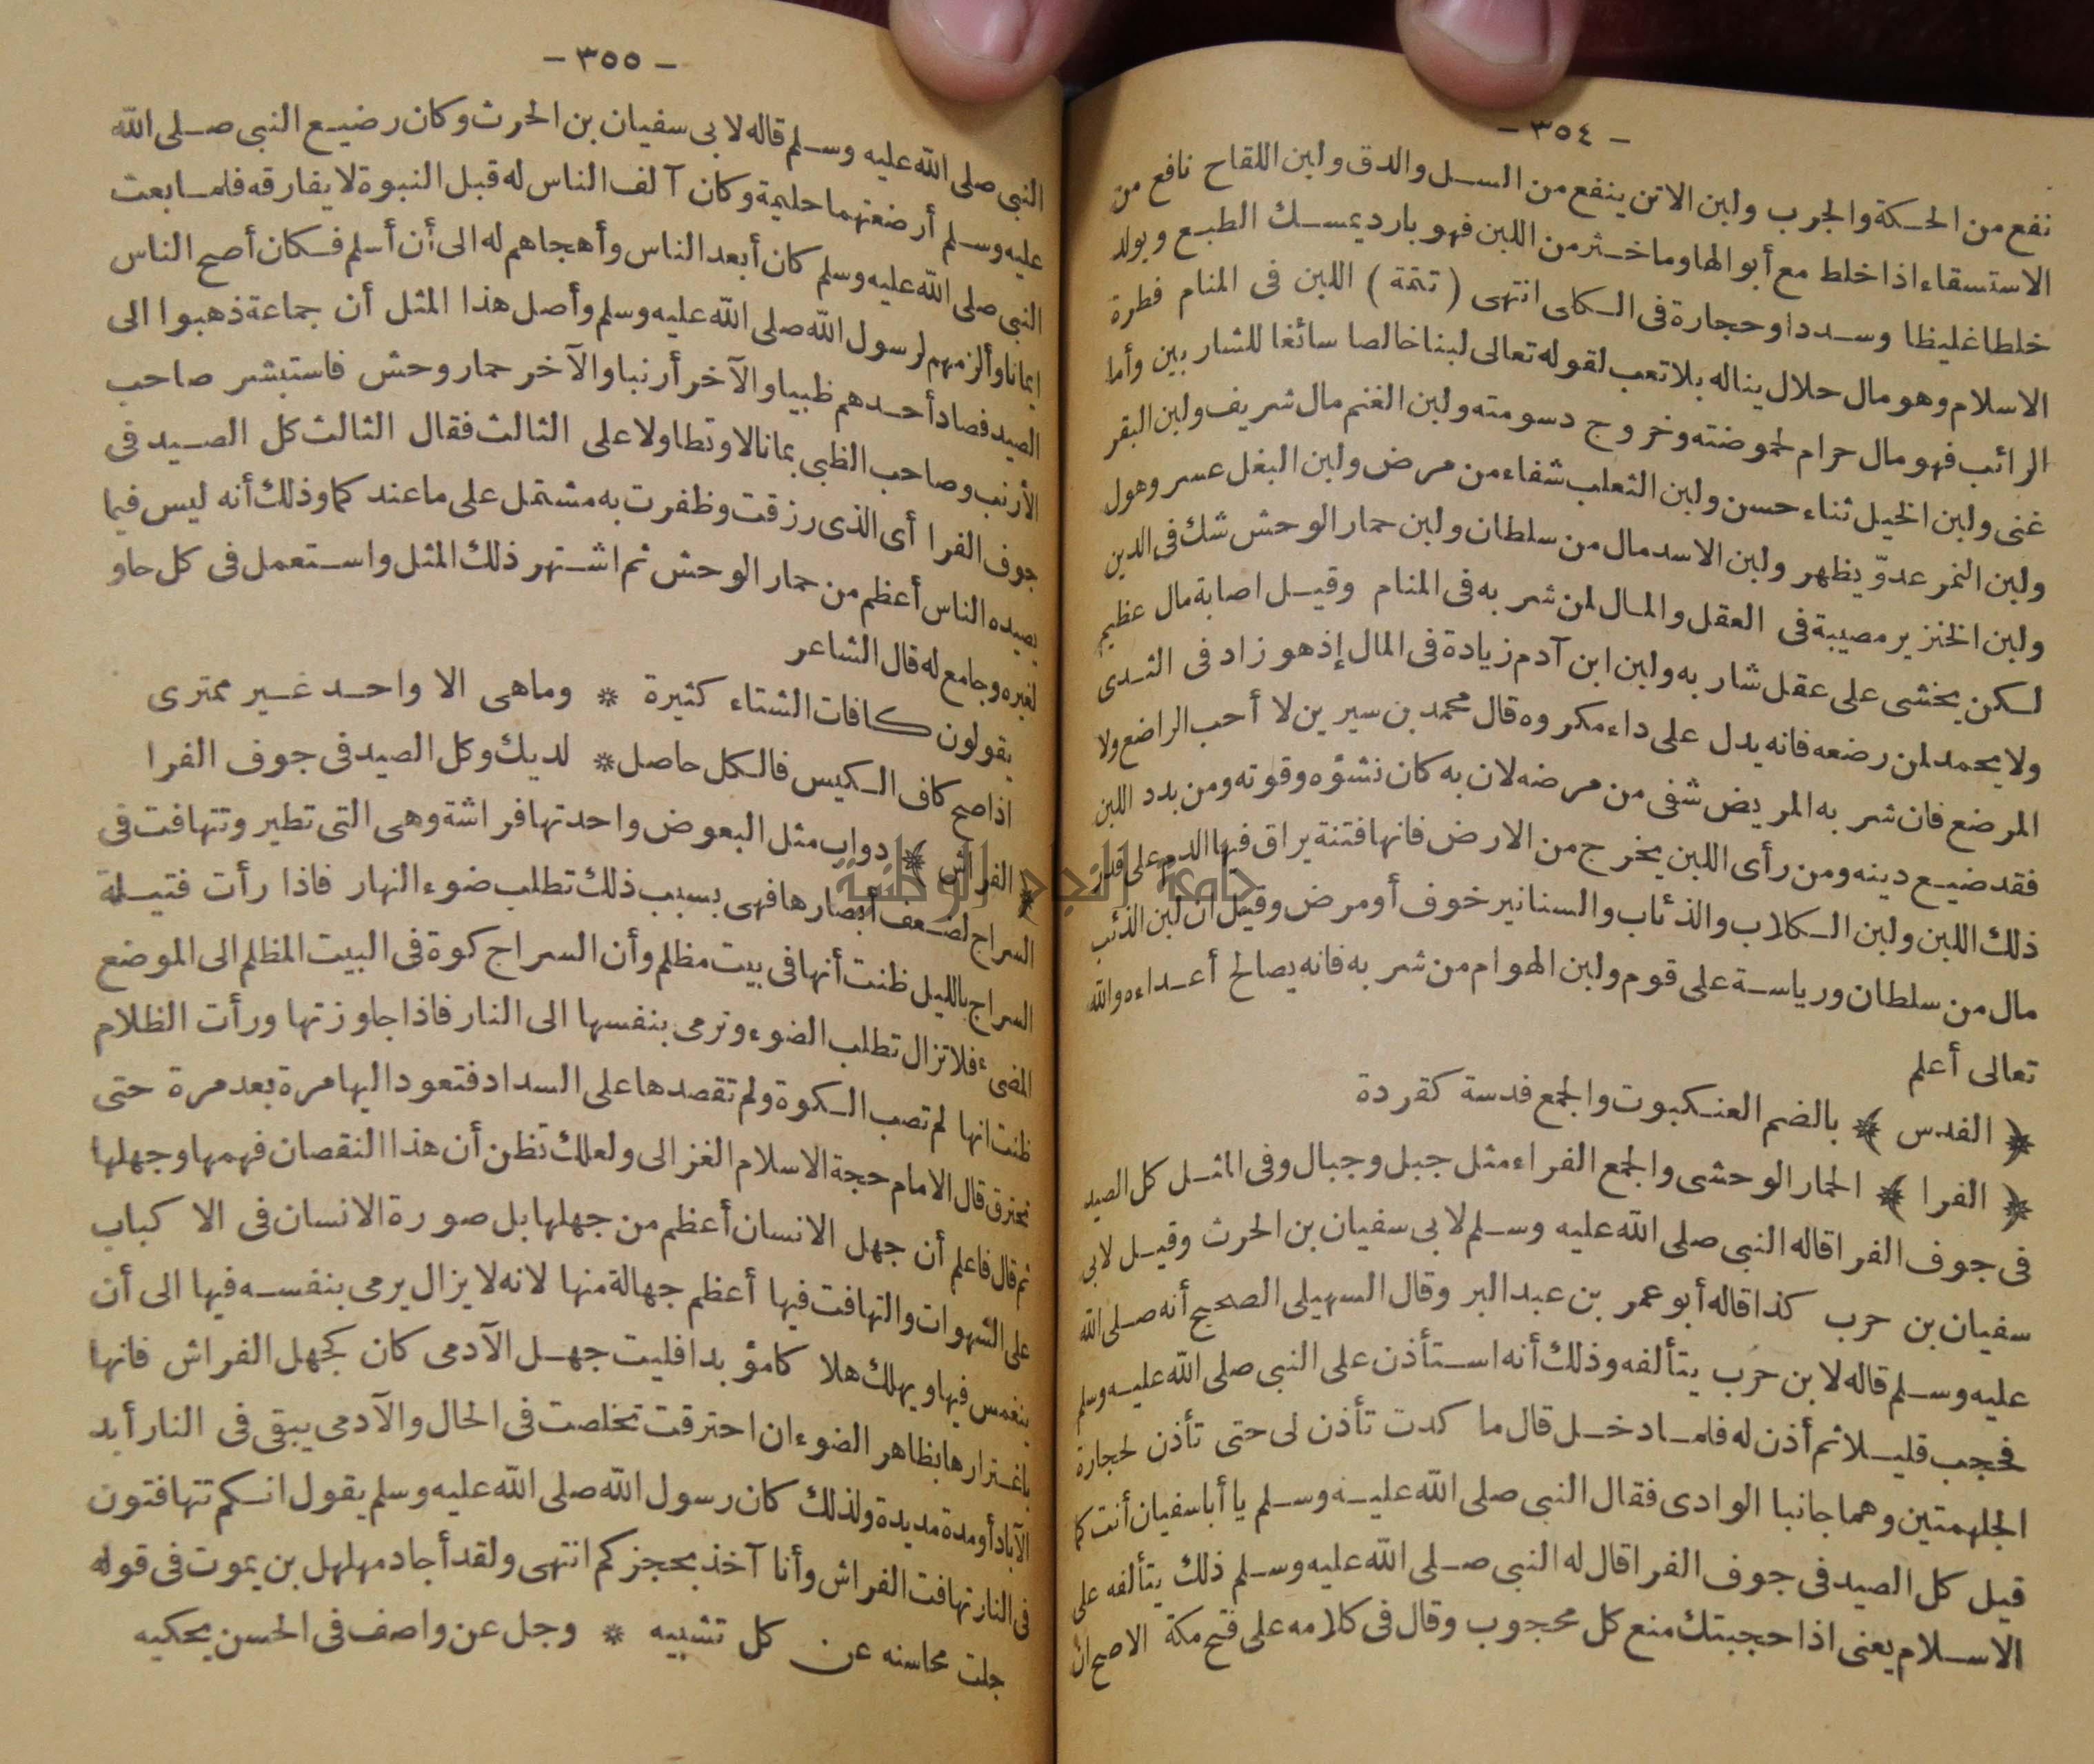 - ٣٥٤ -
نفع من الحكة والجرب ولبن الاتن ينفع من السل والدق ولبن اللقاح نافع من
الاستسقاء اذا خلط مع أبوالها وما خثر من اللبن فهو بارد يمسك الطبع ويولد
خلطا غليظا وسددا وحجارة فى الكلى انتهى (تتمة) اللبن فى المنام فطرة
الاسلام وهو مال حلال يناله بلا تعب لقوله تعالى لبنا خالصا سائغا للشاربين وأما
الرائب فهو مال حرام لحموضته وخروج دسومته ولبن الغنم مال شريف ولبن البقر
غنى ولبن الخيل ثناء حسن ولبن الثعلب شفاء من مرض ولبن البغل عسر وهول
ولبن النمر عدوّ يظهر ولبن الاسد مال من سلطان ولبن حمار الوحش شك فى الدين
ولبن الخنزير مصيبة فى العقل والمال لمن شربه فى المنام وقيل اصابة مال عظيم
لكن يخشى على عقل شاربه ولبن ابن آدم زيادة فى المال إذ هو زاد فى الثدى
ولا يحمد لمن رضعه فانه يدل على داء مكروه قال محمد بن سيرين لا أحب الراضع ولا
المرضع فان شربه المريض شفى من مرضه لان به كان نشؤه وقوته ومن بدد اللبن
فقد ضيع دينه ومن رأى اللبن يخرج من الارض فانها فتنة يراق فيها الدم على قدر
ذلك اللبن ولبن الكلاب والذئاب والسنانير خوف أو مرض وقيل ان لبن الذئب
مال من سلطان ورياسة على قوم ولبن الهوام من شربه فانه يصالح أعداءه والله
تعالى أعلم
﴿ الفدس ﴾ بالضم العنكبوت والجمع فدسة كقردة
﴿ الفرا ﴾ الحمار الوحشى والجمع الفراء مثل جبل وجبال وفى المثل كل الصيد
فى جوف الفرا قاله النبى صلى الله عليه وسلم لابى سفيان بن الحرث وقيل لابى
سفيان بن حرب كذا قاله أبو عمر بن عبد البر وقال السهيلى الصحيح أنه صلى الله
عليه وسلم قاله لابن حرب يتألفه وذلك أنه استأذن على النبى صلى الله عليه وسلم
فحجب قليلا ثم أذن له فلما دخل قال ما كدت تأذن لى حتى تأذن لحجارة
الجلهمتين وهما جانبا الوادى فقال النبى صلى الله عليه وسلم يا أبا سفيان أنت كما
قيل كل الصيد فى جوف الفرا قال له النبى صلى الله عليه وسلم ذلك يتألفه على
الاسلام يعنى اذا حجبتك منع كل محجوب وقال فى كلامه على فتح مكة الاصح ان
- ٣٥٥ -
النبى صلى الله عليه وسلم قاله لابى سفيان بن الحرث وكان رضيع النبى صلى الله
عليه وسلم أرضعتهما حليمة وكان آلف الناس له قبل النبوة لا يفارقه فلما بعث
النبى صلى الله عليه وسلم كان أبعد الناس وأهجاهم له الى أن أسلم فكان أصح الناس
ايمانا وألزمهم لرسول الله صلى الله عليه وسلم وأصل هذا المثل أن جماعة ذهبوا الى
الصيد فصاد أحدهم ظبيا والآخر أرنبا والآخر حمار وحش فاستبشر صاحب
الأرنب وصاحب الظبى بما نالا وتطاولا على الثالث فقال الثالث كل الصيد فى
جوف الفرا أى الذى رزقت وظفرت به مشتمل على ما عندكما وذلك أنه ليس فيما
يصيده الناس أعظم من حمار الوحش ثم اشتهر ذلك المثل واستعمل فى كل حاو
لغيره وجامع له قال الشاعر
يقولون كافات الشتاء كثيرة * وما هى الا واحد غير ممترى
اذا صح كاف الكيس فالكل حاصل * لديك وكل الصيد فى جوف الفرا
﴿ الفراش ﴾ دواب مثل البعوض واحدتها فراشة وهى التى تطير وتتهافت فى
السراج لضعف أبصارها فهى بسبب ذلك تطلب ضوء النهار فاذا رأت فتيلة
السراج بالليل ظنت أنها فى بيت مظلم وأن السراج كوة فى البيت المظلم الى الموضع
المضىء فلا تزال تطلب الضوء وترمى بنفسها الى النار فاذا جاوزتها ورأت الظلام
ظنت انها لم تصب الكوة ولم تقصدها على السداد فتعود اليها مرة بعد مرة حتى
تحترق قال الامام حجة الاسلام الغزالى ولعلك تظن أن هذا النقصان فهمها وجهلها
ثم قال فاعلم أن جهل الانسان أعظم من جهلها بل صورة الانسان فى الاكباب
على الشهوات والتهافت فيها أعظم جهالة منها لانه لا يزال يرمى بنفسه فيها الى أن
ينغمس فيها ويهلك هلاكا مؤبدا فليت جهل الآدمى كان كجهل الفراش فانها
باغترارها بظاهر الضوء ان احترقت تخلصت فى الحال والآدمى يبقى فى النار أبد
الآباد أو مدة مديدة ولذلك كان رسول الله صلى الله عليه وسلم يقول انكم تتهافتون
فى النار تهافت الفراش وأنا آخذ بحجزكم انتهى ولقد أجاد مهلهل بن يموت فى قوله
جلت محاسنه عن كل تشبيه * وجل عن واصف فى الحسن يحكيه
جامعة النجاح الوطنية